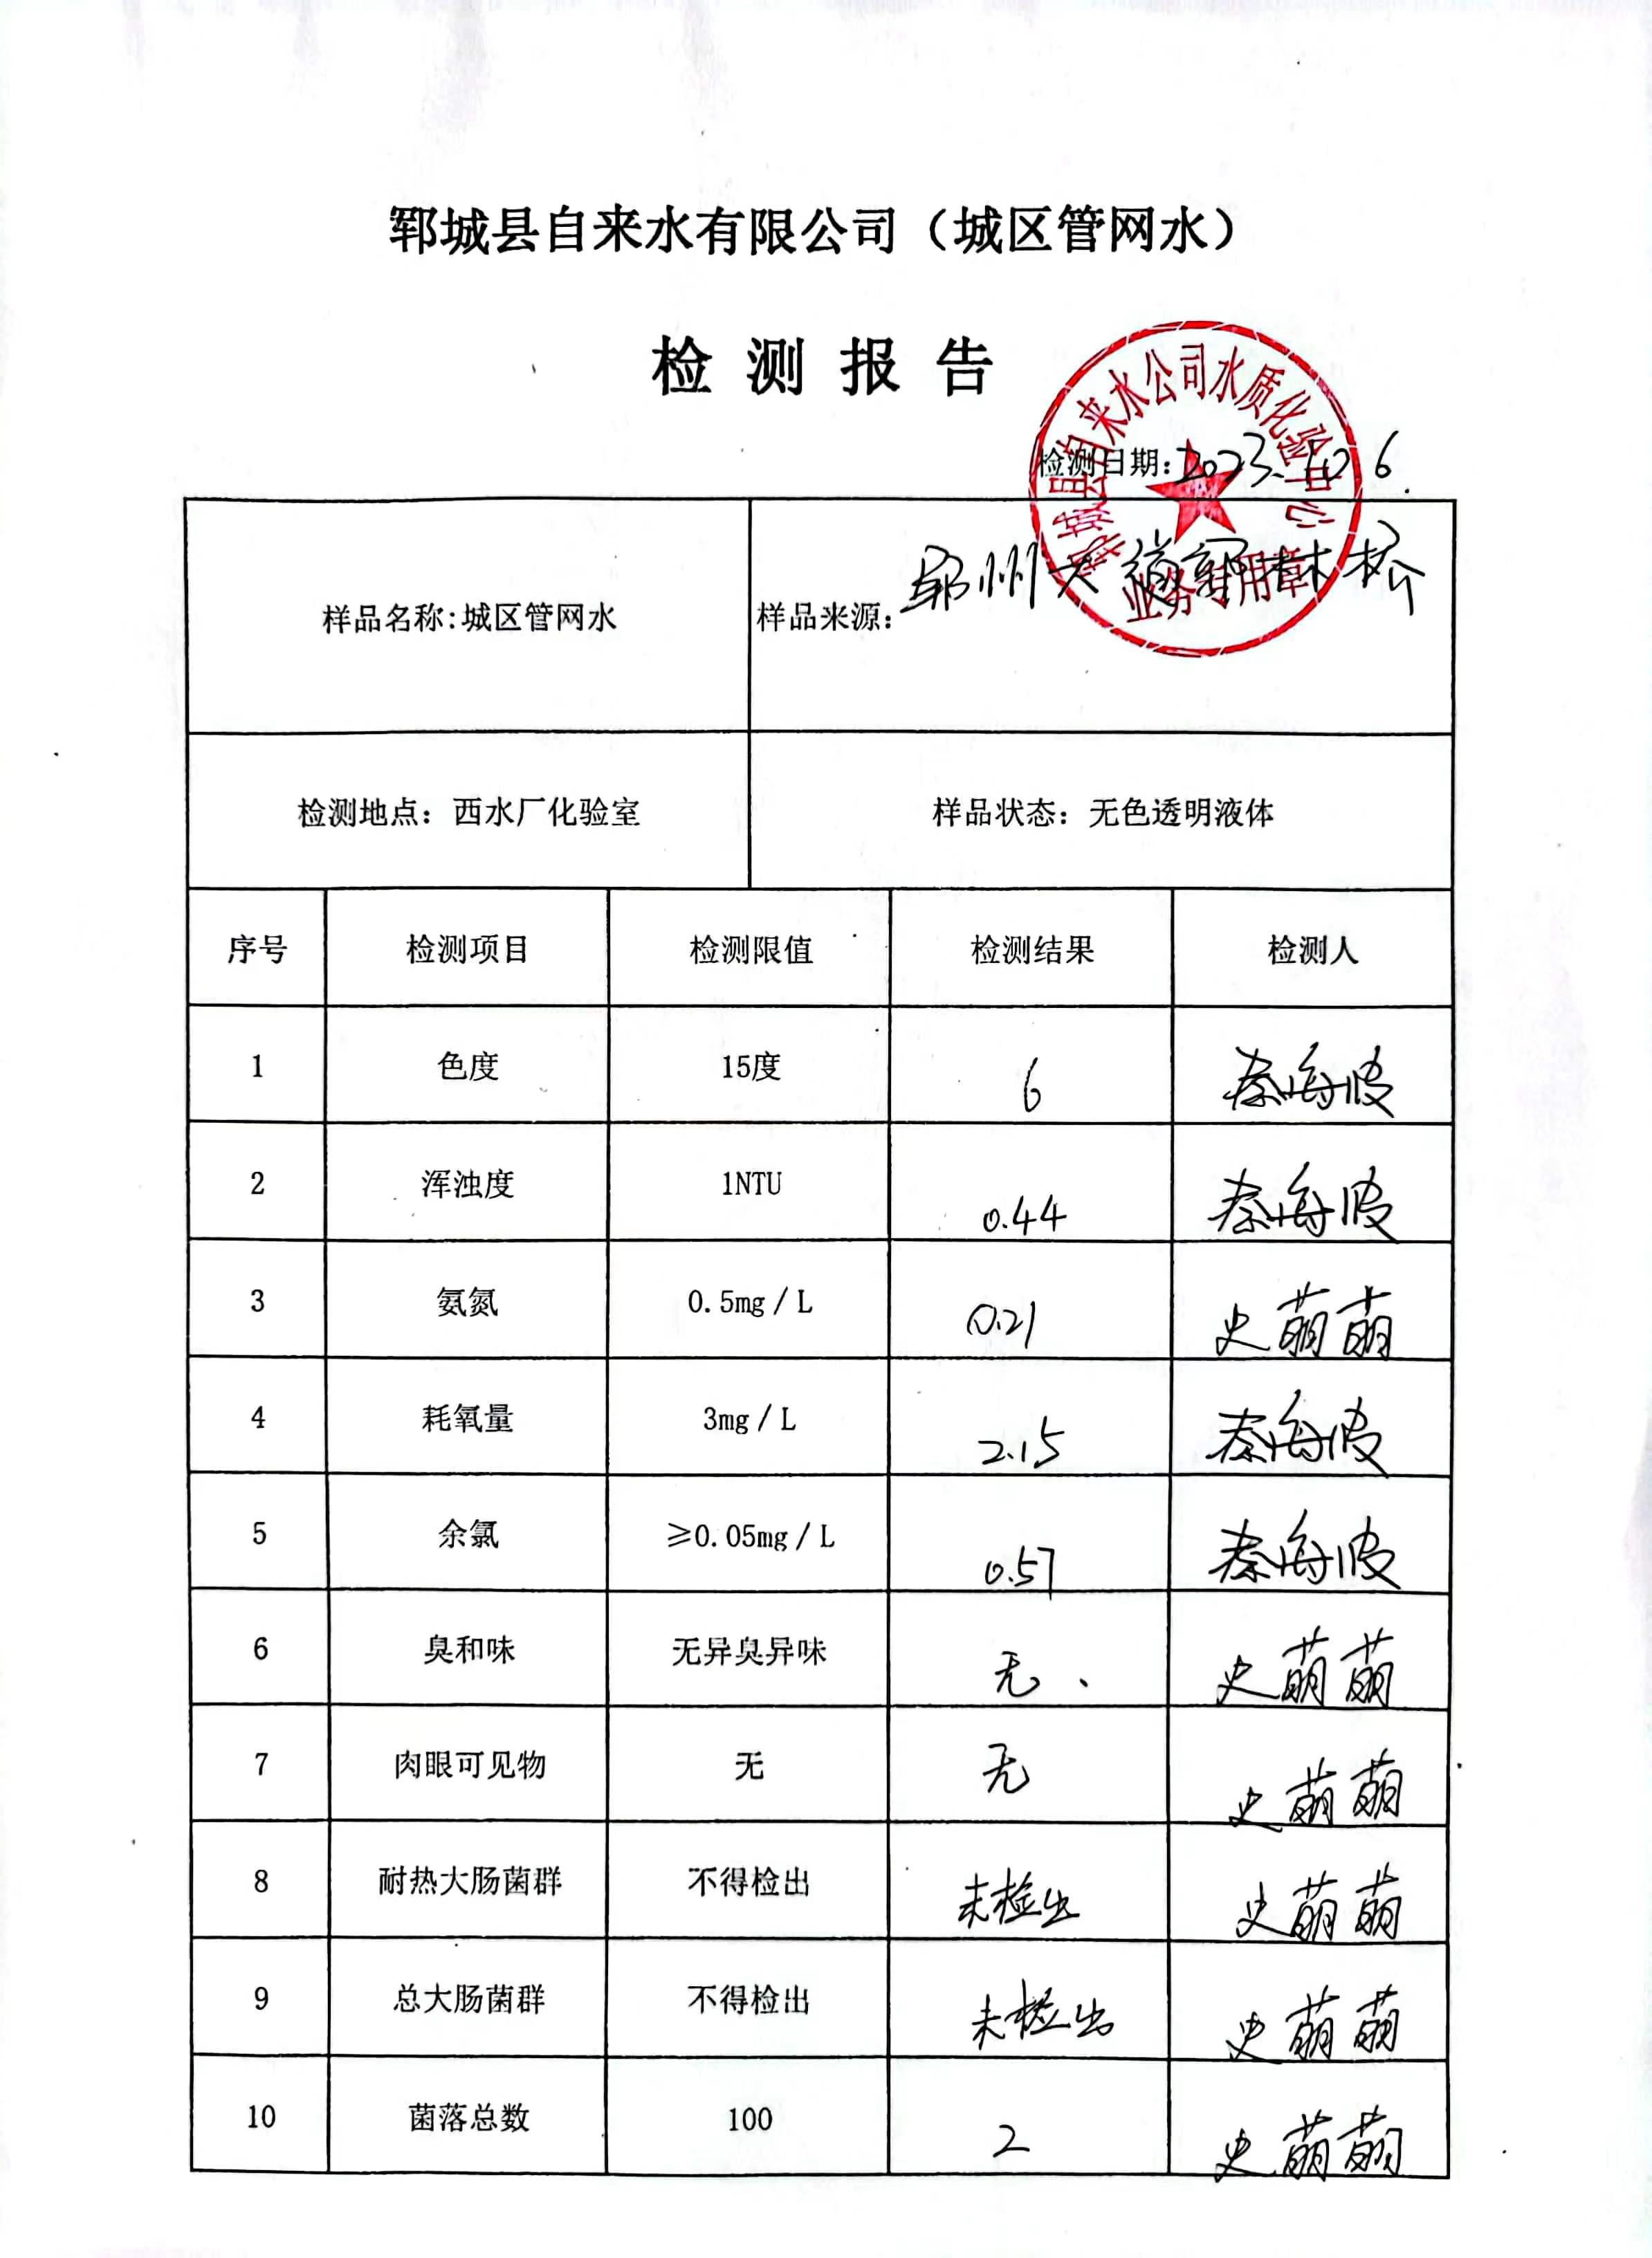 郓城县自来水有限公司（城区管网水）
检测报告
郓城县自来水公司水质化验中心
业务专用章
检测日期：2023.10.6.
样品名称:城区管网水
样品来源：郓州大道郭林桥
检测地点：西水厂化验室
样品状态：无色透明液体
序号 检测项目 检测限值 检测结果 检测人
1 色度 15度 6 秦海波
2 浑浊度 1NTU 0.44 秦海波
3 氨氮 0.5mg／L 0.21 史萌萌
4 耗氧量 3mg／L 2.15 秦海波
5 余氯 ≥0.05mg／L 0.57 秦海波
6 臭和味 无异臭异味 无、 史萌萌
7 肉眼可见物 无 无 史萌萌
8 耐热大肠菌群 不得检出 未检出 史萌萌
9 总大肠菌群 不得检出 未检出 史萌萌
10 菌落总数 100 2 史萌萌